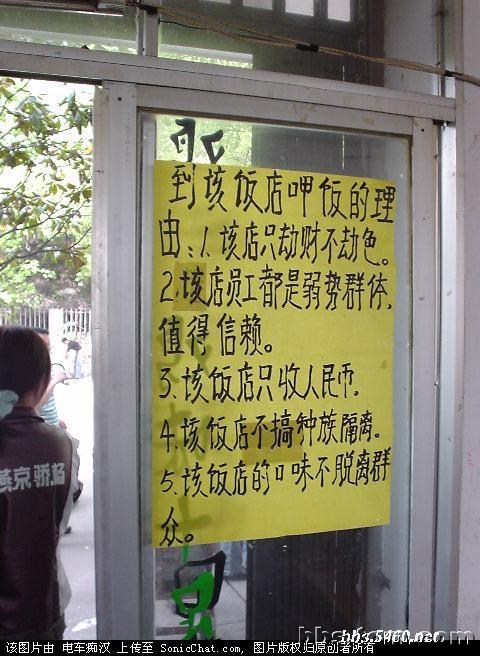 到该饭店呷饭的理
由:1.该店只劫财不劫色。
2.该店员工都是弱势群体,
值得信赖。
3.该饭店只收人民币.
4.该饭店不搞种族隔离。
5.该饭店的口味不脱离群
众。
燕京骄杨
bbs.5460.net
该图片由 电车痴汉 上传至 SonicChat.com, 图片版权归原创者所有